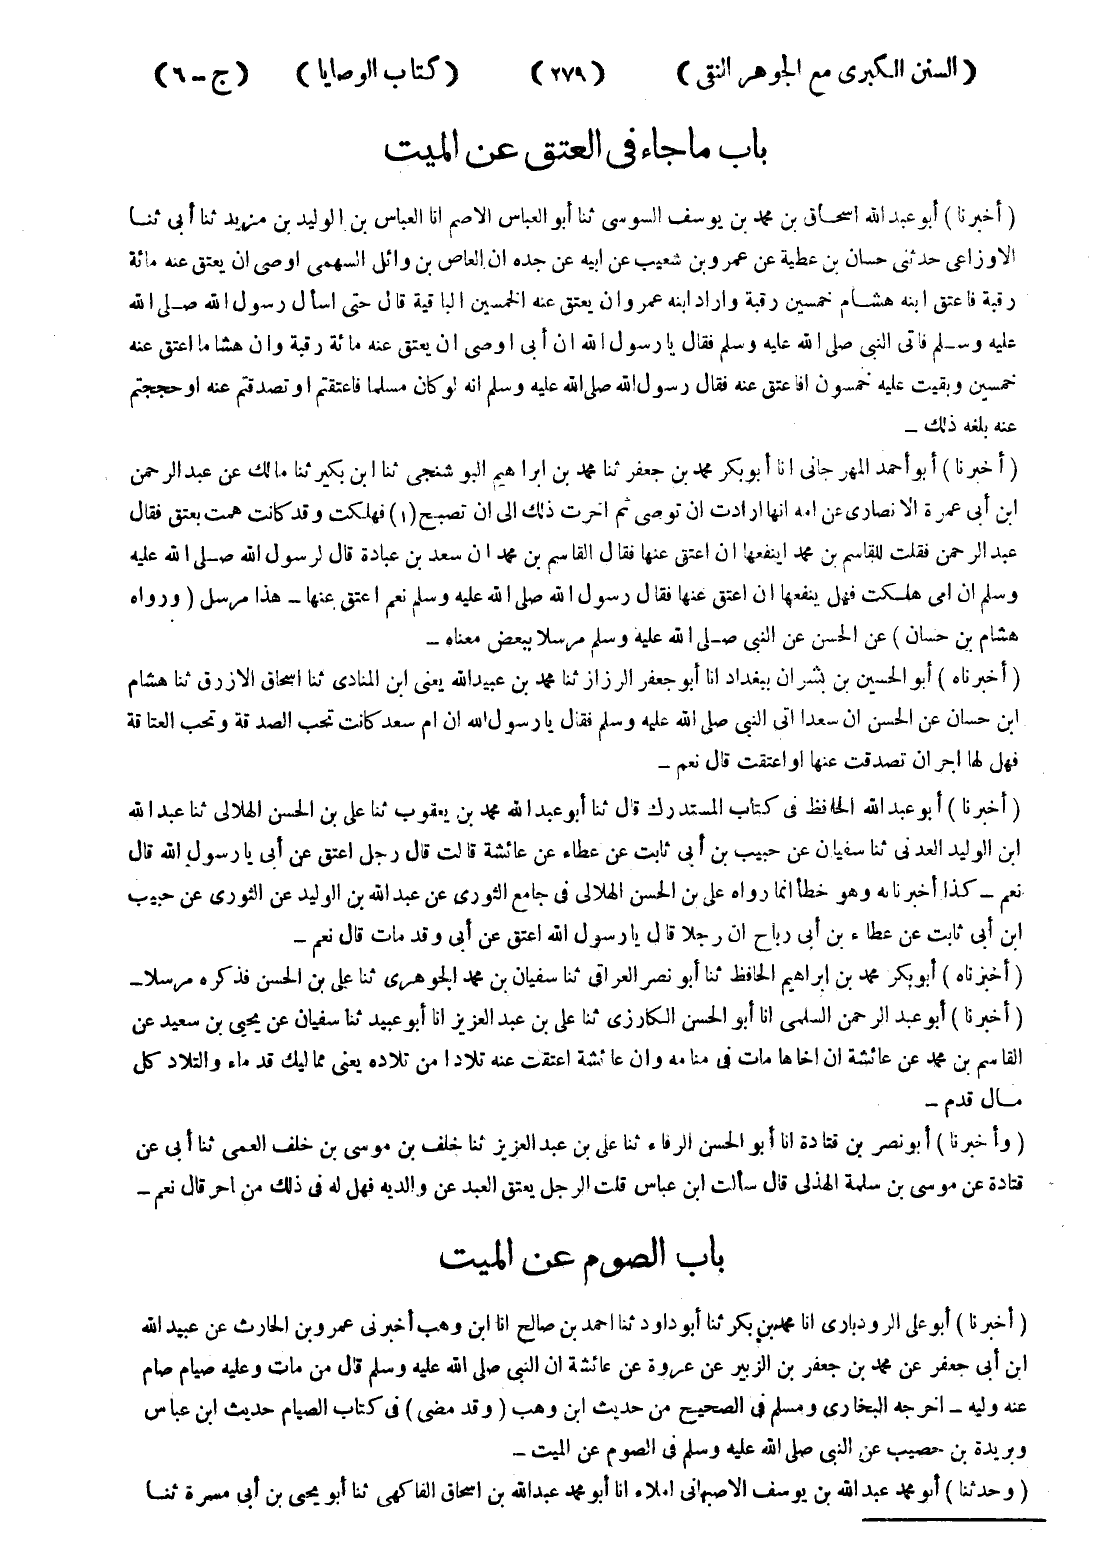 ( السنن الكبرى مع الجوهر النقى ) ( ٢٧٩ ) ( كتاب الوصايا ) ( ج - ٦ )
باب ما جاء فى العتق عن الميت
( أخبرنا ) أبو عبد الله اسحاق بن محمد بن يوسف السوسى ثنا أبو العباس الاصم انا العباس بن الوليد بن مزيد ثنا أبى ثنا
الاوزاعى حدثنى حسان بن عطية عن عمرو بن شعيب عن ابيه عن جده ان العاص بن وائل السهمى اوصى ان يعتق عنه مائة
رقبة فاعتق ابنه هشام خمسين رقبة واراد ابنه عمرو ان يعتق عنه الخمسين الباقية قال حتى اسأل رسول الله صلى الله
عليه وسلم فاتى النبى صلى الله عليه وسلم فقال يا رسول الله ان أبى اوصى ان يعتق عنه مائة رقبة وان هشاما اعتق عنه
خمسين وبقيت عليه خمسون افاعتق عنه فقال رسول الله صلى الله عليه وسلم انه لو كان مسلما فاعتقتم او تصدقتم عنه او حججتم
عنه بلغه ذلك -
( أخبرنا ) أبو أحمد المهرجانى انا أبو بكر محمد بن جعفر ثنا محمد بن ابراهيم البوشنجى ثنا ابن بكير ثنا مالك عن عبد الرحمن
ابن أبى عمرة الانصارى عن امه انها ارادت ان توصى ثم اخرت ذلك الى ان تصبح (١) فهلكت وقد كانت همت بعتق فقال
عبد الرحمن فقلت للقاسم بن محمد اينفعها ان اعتق عنها فقال القاسم بن محمد ان سعد بن عبادة قال لرسول الله صلى الله عليه
وسلم ان امى هلكت فهل ينفعها ان اعتق عنها فقال رسول الله صلى الله عليه وسلم نعم اعتق عنها - هذا مرسل ( ورواه
هشام بن حسان ) عن الحسن عن النبى صلى الله عليه وسلم مرسلا ببعض معناه -
( أخبرناه ) أبو الحسين بن بشران ببغداد انا أبو جعفر الرزاز ثنا محمد بن عبيد الله يعنى ابن المنادى ثنا اسحاق الازرق ثنا هشام
ابن حسان عن الحسن ان سعدا اتى النبى صلى الله عليه وسلم فقال يا رسول الله ان ام سعد كانت تحب الصدقة وتحب العتاقة
فهل لها اجر ان تصدقت عنها او اعتقت قال نعم -
( أخبرنا ) أبو عبد الله الحافظ فى كتاب المستدرك قال ثنا أبو عبد الله محمد بن يعقوب ثنا على بن الحسن الهلالى ثنا عبد الله
ابن الوليد العدنى ثنا سفيان عن حبيب بن أبى ثابت عن عطاء عن عائشة قالت قال رجل اعتق عن أبى يا رسول الله قال
نعم - كذا أخبرناه وهو خطأ انما رواه على بن الحسن الهلالى فى جامع الثورى عن عبد الله بن الوليد عن الثورى عن حبيب
ابن أبى ثابت عن عطاء بن أبى رباح ان رجلا قال يا رسول الله اعتق عن أبى وقد مات قال نعم -
( أخبرناه ) أبو بكر محمد بن إبراهيم الحافظ ثنا أبو نصر العراقى ثنا سفيان بن محمد الجوهرى ثنا على بن الحسن فذكره مرسلا -
( أخبرنا ) أبو عبد الرحمن السلمى انا أبو الحسن الكارزى ثنا على بن عبد العزيز انا أبو عبيد ثنا سفيان عن يحيى بن سعيد عن
القاسم بن محمد عن عائشة ان اخاها مات فى منامه وان عائشة اعتقت عنه تلادا من تلاده يعنى مماليك قدماء والتلاد كل
مال قدم -
( وأخبرنا ) أبو نصر بن قتادة انا أبو الحسن الرفاء ثنا على بن عبد العزيز ثنا خلف بن موسى بن خلف العمى ثنا أبى عن
قتادة عن موسى بن سلمة الهذلى قال سألت ابن عباس قلت الرجل يعتق العبد عن والديه فهل له فى ذلك من اجر قال نعم -
باب الصوم عن الميت
( أخبرنا ) أبو على الروذبارى انا محمد بن بكر ثنا أبو داود ثنا احمد بن صالح انا ابن وهب أخبرنى عمرو بن الحارث عن عبيد الله
ابن أبى جعفر عن محمد بن جعفر بن الزبير عن عروة عن عائشة ان النبى صلى الله عليه وسلم قال من مات وعليه صيام صام
عنه وليه - اخرجه البخارى ومسلم فى الصحيح من حديث ابن وهب ( وقد مضى ) فى كتاب الصيام حديث ابن عباس
وبريدة بن حصيب عن النبى صلى الله عليه وسلم فى الصوم عن الميت -
( وحدثنا ) أبو محمد عبد الله بن يوسف الاصبهانى املاء انا أبو محمد عبد الله بن اسحاق الفاكهى ثنا أبو يحيى بن أبى مسرة ثنا